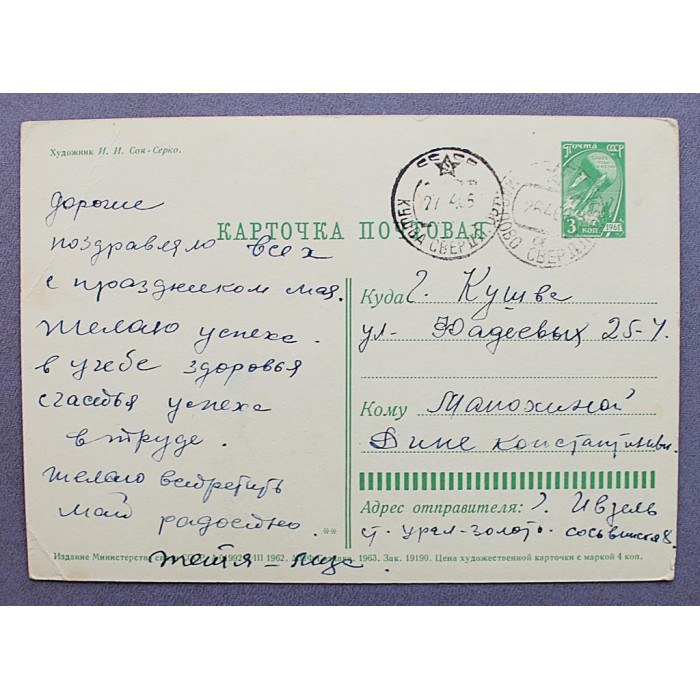 Художник И. И. Соя-Серко.
Почта СССР
1961
3 коп
КАРТОЧКА ПОЧТОВАЯ
СССР
КУШВА СВЕРДЛ.
дорогие
поздравляю всех
с праздником мая.
Желаю успеха
в учебе здоровья
счастья успеха
в труде.
желаю встретить
май радостно.
тетя-Лиза
Куда г. Кушва
ул- Фадеевых 25-4.
Кому Манохиной
Дине Константиновн.
Адрес отправителя:
ст. Урал-золото. сосьвинская 8.
**
Издание Министерства 1962. 1963. Зак. 19190. Цена художественной карточки с маркой 4 коп.